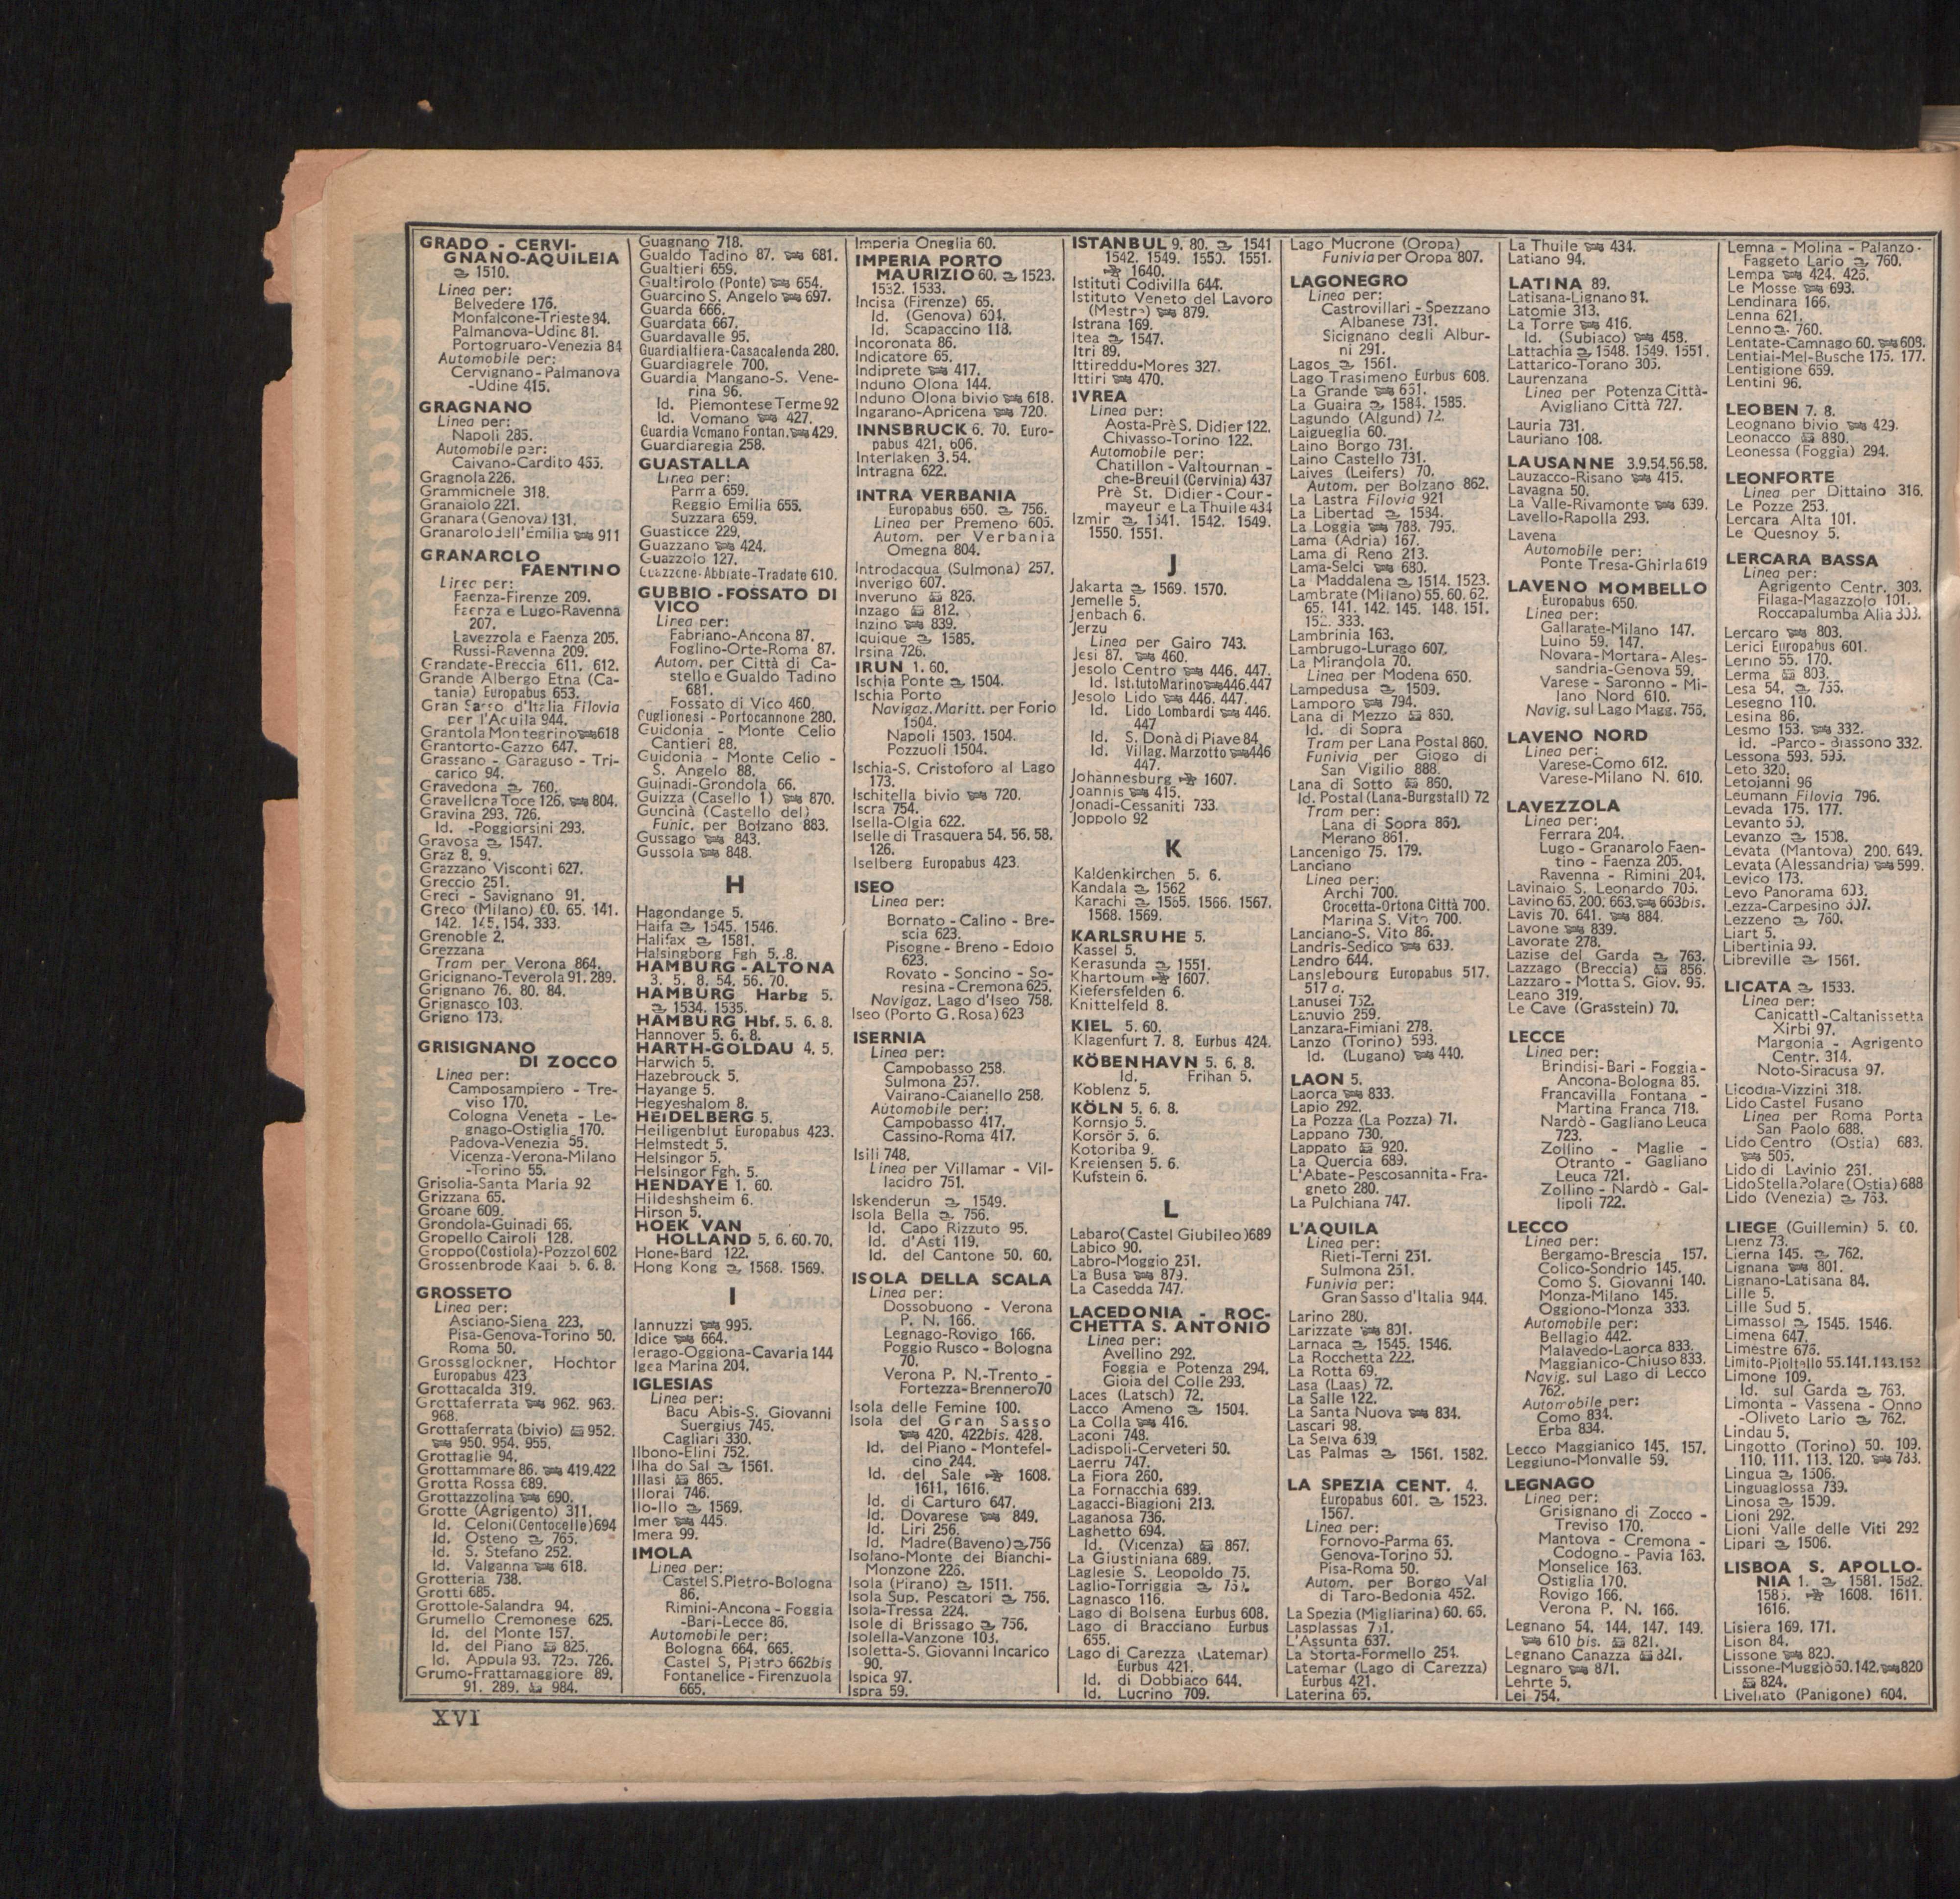 GRADO - CERVI-
GNANO-AQUILEIA
1510.
Linea per:
Belvedere 176.
Monfalcone-Trieste 84.
Palmanova-Udine 81.
Portogruaro-Venezia 84
Automobile per:
Cervignano-Palmanova
-Udine 415.
GRAGNANO
Linea per:
Napoli 285.
Automobile per:
Caivano-Cardito 465.
Gragnola 226.
Grammichele 318.
Granaiolo 221.
Granara (Genova) 131.
Granarolo dell'Emilia 911
GRANAROLO
FAENTINO
Linea per:
Faenza-Firenze 209.
Faenza e Lugo-Ravenna
207.
Lavezzola e Faenza 205.
Russi-Ravenna 209.
Grandate-Breccia 611. 612.
Grande Albergo Etna (Ca-
tania) Europabus 653.
Gran Sasso d'Italia Filovia
per l'Aquila 944.
Grantola Montegrino 618
Grantorto-Gazzo 647.
Grassano - Garaguso - Tri-
carico 94.
Gravedona 760.
Gravellona Toce 126. 804.
Gravina 293. 726.
Id. -Poggiorsini 293.
Gravosa 1547.
Graz 8. 9.
Grazzano Visconti 627.
Greccio 251.
Greci - Savignano 91.
Greco (Milano) 60. 65. 141.
142. 145. 154. 333.
Grenoble 2.
Grezzana
Tram per Verona 864.
Gricignano-Teverola 91. 289.
Grignano 76. 80. 84.
Grignasco 103.
Grigno 173.
GRISIGNANO
DI ZOCCO
Linea per:
Camposampiero - Tre-
viso 170.
Cologna Veneta - Le-
gnago-Ostiglia 170.
Padova-Venezia 55.
Vicenza-Verona-Milano
-Torino 55.
Grisolia-Santa Maria 92
Grizzana 65.
Groane 609.
Grondola-Guinadi 66.
Gropello Cairoli 128.
Groppo (Costiola)-Pozzol 602
Grossenbrode Kaai 5. 6. 8.
GROSSETO
Linea per:
Asciano-Siena 223.
Pisa-Genova-Torino 50.
Roma 50.
Grossglockner, Hochtor
Europabus 423
Grottacalda 319.
Grottaferrata 962. 963.
968.
Grottaferrata (bivio) 952.
950. 954. 955.
Grottaglie 94.
Grottammare 86. 419.422
Grotta Rossa 689.
Grottazzolina 690.
Grotte (Agrigento) 311.
Id. Celoni (Centocelle) 694
Id. Osteno 765.
Id. S. Stefano 252.
Id. Valganna 618.
Grotteria 738.
Grotti 685.
Grottole-Salandra 94.
Grumello Cremonese 625.
Id. del Monte 157.
Id. del Piano 825.
Id. Appula 93. 725. 726.
Grumo-Frattamaggiore 89.
91. 289. 984.
Guagnano 718.
Gualdo Tadino 87. 681.
Gualtieri 659.
Gualtirolo (Ponte) 654.
Guarcino S. Angelo 697.
Guarda 666.
Guardata 667.
Guardavalle 95.
Guardialfiera-Casacalenda 280.
Guardiagrele 700.
Guardia Mangano-S. Vene-
rina 96.
Id. Piemontese Terme 92
Id. Vomano 427.
Guardia Vomano Fontan. 429.
Guardiaregia 258.
GUASTALLA
Linea per:
Parma 659.
Reggio Emilia 655.
Suzzara 659.
Guasticce 229.
Guazzano 424.
Guazzolo 127.
Guazzone-Abbiate-Tradate 610.
GUBBIO - FOSSATO DI
VICO
Linea per:
Fabriano-Ancona 87.
Foglino-Orte-Roma 87.
Autom. per Città di Ca-
stello e Gualdo Tadino
681.
Fossato di Vico 460.
Guglionesi - Portocannone 280.
Guidonia - Monte Celio
Cantieri 88.
Guidonia - Monte Celio -
S. Angelo 88.
Guinadi-Grondola 66.
Guizza (Casello 1) 870.
Guncinà (Castello del)
Funic. per Bolzano 883.
Gussago 843.
Gussola 848.
H
Hagondange 5.
Haifa 1545. 1546.
Halifax 1581.
Halsingborg Fgh 5. 8.
HAMBURG - ALTONA
3. 5. 8. 54. 56. 70.
HAMBURG Harbg 5.
1534. 1535.
HAMBURG Hbf. 5. 6. 8.
Hannover 5. 6. 8.
HARTH-GOLDAU 4. 5.
Harwich 5.
Hazebrouck 5.
Hayange 5.
Hegyeshalom 8.
HEIDELBERG 5.
Heiligenblut Europabus 423.
Helmstedt 5.
Helsingor 5.
Helsingor Fgh. 5.
HENDAYE 1. 60.
Hildeshsheim 6.
Hirson 5.
HOEK VAN
HOLLAND 5. 6. 60. 70.
Hone-Bard 122.
Hong Kong 1568. 1569.
I
Iannuzzi 995.
Idice 664.
Ierago-Oggiona-Cavaria 144
Igea Marina 204.
IGLESIAS
Linea per:
Bacu Abis-S. Giovanni
Suergius 745.
Cagliari 330.
Ilbono-Elini 752.
Ilha do Sal 1561.
Illasi 865.
Illorai 746.
Ilo-Ilo 1569.
Imer 445.
Imera 99.
IMOLA
Linea per:
Castel S. Pietro-Bologna
86.
Rimini-Ancona - Foggia
-Bari-Lecce 86.
Automobile per:
Bologna 664. 665.
Castel S. Pietro 662bis
Fontanelice - Firenzuola
665.
Imperia Oneglia 60.
IMPERIA PORTO
MAURIZIO 60. 1523.
1532. 1533.
Incisa (Firenze) 65.
Id. (Genova) 604.
Id. Scapaccino 118.
Incoronata 86.
Indicatore 65.
Indiprete 417.
Induno Olona 144.
Induno Olona bivio 618.
Ingarano-Apricena 720.
INNSBRUCK 6. 70. Euro-
pabus 421. 606.
Interlaken 3. 54.
Intragna 622.
INTRA VERBANIA
Europabus 650. 756.
Linea per Premeno 605.
Autom. per Verbania
Omegna 804.
Introdacqua (Sulmona) 257.
Inverigo 607.
Inveruno 826.
Inzago 812.
Inzino 839.
Iquique 1585.
Irsina 726.
IRUN 1. 60.
Ischia Ponte 1504.
Ischia Porto
Navigaz. Maritt. per Forio
1504.
Napoli 1503. 1504.
Pozzuoli 1504.
Ischia-S. Cristoforo al Lago
173.
Ischitella bivio 720.
Iscra 754.
Isella-Olgia 622.
Iselle di Trasquera 54. 56. 58.
126.
Iselberg Europabus 423.
ISEO
Linea per:
Bornato - Calino - Bre-
scia 623.
Pisogne - Breno - Edolo
623.
Rovato - Soncino - So-
resina - Cremona 625.
Navigaz. Lago d'Iseo 758.
Iseo (Porto G. Rosa) 623
ISERNIA
Linea per:
Campobasso 258.
Sulmona 257.
Vairano-Caianello 258.
Automobile per:
Campobasso 417.
Cassino-Roma 417.
Isili 748.
Linea per Villamar - Vil-
lacidro 751.
Iskenderun 1549.
Isola Bella 756.
Id. Capo Rizzuto 95.
Id. d'Asti 119.
Id. del Cantone 50. 60.
ISOLA DELLA SCALA
Linea per:
Dossobuono - Verona
P. N. 166.
Legnago-Rovigo 166.
Poggio Rusco - Bologna
70.
Verona P. N.-Trento -
Fortezza-Brennero 70
Isola delle Femine 100.
Isola del Gran Sasso
420. 422bis. 428.
Id. del Piano - Montefel-
cino 244.
Id. del Sale 1608.
1611. 1616.
Id. di Carturo 647.
Id. Dovarese 849.
Id. Liri 256.
Id. Madre (Baveno) 756
Isolano-Monte dei Bianchi-
Monzone 226.
Isola (Pirano) 1511.
Isola Sup. Pescatori 756.
Isola-Tressa 224.
Isole di Brissago 756.
Isolella-Vanzone 103.
Isoletta-S. Giovanni Incarico
90.
Ispica 97.
Ispra 59.
ISTANBUL 9. 80. 1541
1542. 1549. 1550. 1551.
1640.
Istituti Codivilla 644.
Istituto Veneto del Lavoro
(Mestre) 879.
Istrana 169.
Itea 1547.
Itri 89.
Ittireddu-Mores 327.
Ittiri 470.
IVREA
Linea per:
Aosta-Prè S. Didier 122.
Chivasso-Torino 122.
Automobile per:
Chatillon - Valtournan -
che-Breuil (Cervinia) 437
Prè St. Didier - Cour-
mayeur e La Thuile 434
Izmir 1541. 1542. 1549.
1550. 1551.
J
Jakarta 1569. 1570.
Jemelle 5.
Jenbach 6.
Jerzu
Linea per Gairo 743.
Jesi 87. 460.
Jesolo Centro 446. 447.
Id. Istituto Marino 446.447
Jesolo Lido 446. 447.
Id. Lido Lombardi 446.
447
Id. S. Donà di Piave 84.
Id. Villag. Marzotto 446
447.
Johannesburg 1607.
Joannis 415.
Jonadi-Cessaniti 733.
Joppolo 92
K
Kaldenkirchen 5. 6.
Kandala 1562
Karachi 1565. 1566. 1567.
1568. 1569.
KARLSRUHE 5.
Kassel 5.
Kerasunda 1551.
Khartoum 1607.
Kiefersfelden 6.
Knittelfeld 8.
KIEL 5. 60.
Klagenfurt 7. 8. Eurbus 424.
KÖBENHAVN 5. 6. 8.
Id. Frihan 5.
Koblenz 5.
KÖLN 5. 6. 8.
Kornsjo 5.
Korsör 5. 6.
Kotoriba 9.
Kreiensen 5. 6.
Kufstein 6.
L
Labaro (Castel Giubileo) 689
Labico 90.
Labro-Moggio 251.
La Busa 879.
La Casedda 747.
LACEDONIA - ROC-
CHETTA S. ANTONIO
Linea per:
Avellino 292.
Foggia e Potenza 294.
Gioia del Colle 293.
Laces (Latsch) 72.
Lacco Ameno 1504.
La Colla 416.
Laconi 748.
Ladispoli-Cerveteri 50.
Laerru 747.
La Fiora 260.
La Fornacchia 689.
Lagacci-Biagioni 213.
Laganosa 736.
Laghetto 694.
Id. (Vicenza) 867.
La Giustiniana 689.
Laglesie S. Leopoldo 75.
Laglio-Torriggia
Lagnasco 116.
Lago di Bolsena Eurbus 608.
Lago di Bracciano Eurbus
655.
Lago di Carezza (Latemar)
Eurbus 421.
Id. di Dobbiaco 644.
Id. Lucrino 709.
Lago Mucrone (Oropa)
Funivia per Oropa 807.
LAGONEGRO
Linea per:
Castrovillari - Spezzano
Albanese 731.
Sicignano degli Albur-
ni 291.
Lagos 1561.
Lago Trasimeno Eurbus 608.
La Grande 651.
La Guaira 1584. 1585.
Lagundo (Algund) 72.
Laigueglia 60.
Laino Borgo 731.
Laino Castello 731.
Laives (Leifers) 70.
Autom. per Bolzano 862.
La Lastra Filovia 921
La Libertad 1534.
La Loggia 788. 795.
Lama (Adria) 167.
Lama di Reno 213.
Lama-Selci 680.
La Maddalena 1514. 1523.
Lambrate (Milano) 55. 60. 62.
65. 141. 142. 145. 148. 151.
333.
Lambrinia 163.
Lambrugo-Lurago 607.
La Mirandola 70.
Linea per Modena 650.
Lampedusa 1509.
Lamporo 794.
Lana di Mezzo 860.
Id. di Sopra
Tram per Lana Postal 860.
Funivia per Giogo di
San Vigilio 888.
Lana di Sotto 860.
Id. Postal (Lana-Burgstall) 72
Tram per:
Lana di Sopra 860.
Merano 861.
Lancenigo 75. 179.
Lanciano
Linea per:
Archi 700.
Crocetta-Ortona Città 700.
Marina S. Vito 700.
Lanciano-S. Vito 86.
Landris-Sedico 639.
Landro 644.
Lanslebourg Europabus 517.
517 a.
Lanusei 752.
Lanuvio 259.
Lanzara-Fimiani 278.
Lanzo (Torino) 593.
Id. (Lugano) 440.
LAON 5.
Laorca 833.
Lapio 292.
La Pozza (La Pozza) 71.
Lappano 730.
Lappato 920.
La Quercia 689.
L'Abate-Pescosannita - Fra-
gneto 280.
La Pulchiana 747.
L'AQUILA
Linea per:
Rieti-Terni 251.
Sulmona 251.
Funivia per:
Gran Sasso d'Italia 944.
Larino 280.
Larizzate 801.
Larnaca 1545. 1546.
La Rocchetta 222.
La Rotta 69.
Lasa (Laas) 72.
La Salle 122.
La Santa Nuova 834.
Lascari 98.
La Selva 639.
Las Palmas 1561. 1582.
LA SPEZIA CENT. 4.
Europabus 601. 1523.
1567.
Linea per:
Fornovo-Parma 65.
Genova-Torino 50.
Pisa-Roma 50.
Autom. per Borgo Val
di Taro-Bedonia 452.
La Spezia (Migliarina) 60. 65.
Lasplassas 751.
L'Assunta 637.
La Storta-Formello 254.
Latemar (Lago di Carezza)
Eurbus 421.
Laterina 65.
La Thuile 434.
Latiano 94.
LATINA 89.
Latisana-Lignano 84.
Latomie 313.
La Torre 416.
Id. (Subiaco) 458.
Lattachia 1548. 1549. 1551.
Lattarico-Torano 305.
Laurenzana
Linea per Potenza Città-
Avigliano Città 727.
Lauria 731.
Lauriano 108.
LAUSANNE 3.9.54.56.58.
Lauzacco-Risano 415.
Lavagna 50.
La Valle-Rivamonte 639.
Lavello-Rapolla 293.
Lavena
Automobile per:
Ponte Tresa-Ghirla 619
LAVENO MOMBELLO
Europabus 650.
Linea per:
Gallarate-Milano 147.
Luino 59. 147.
Novara-Mortara-Ales-
sandria-Genova 59.
Varese - Saronno - Mi-
lano Nord 610.
Navig. sul Lago Magg. 756.
LAVENO NORD
Linea per:
Varese-Como 612.
Varese-Milano N. 610.
LAVEZZOLA
Linea per:
Ferrara 204.
Lugo - Granarolo Faen-
tino - Faenza 205.
Ravenna - Rimini 204.
Lavinaio S. Leonardo 705.
Lavino 65. 200. 663. 663bis.
Lavis 70. 641. 884.
Lavone 839.
Lavorate 278.
Lazise del Garda 763.
Lazzago (Breccia) 856.
Lazzaro - Motta S. Giov. 95.
Leano 319.
Le Cave (Grasstein) 70.
LECCE
Linea per:
Brindisi-Bari - Foggia -
Ancona-Bologna 86.
Francavilla Fontana -
Martina Franca 718.
Nardò - Gagliano Leuca
723.
Zollino - Maglie -
Otranto - Gagliano
Leuca 721.
Zollino - Nardò - Gal-
lipoli 722.
LECCO
Linea per:
Bergamo-Brescia 157.
Colico-Sondrio 145.
Como S. Giovanni 140.
Monza-Milano 145.
Oggiono-Monza 333.
Automobile per:
Bellagio 442.
Malavedo-Laorca 833.
Maggianico-Chiuso 833.
Navig. sul Lago di Lecco
762.
Automobile per:
Como 834.
Erba 834.
Lecco Maggianico 145. 157.
Leggiuno-Monvalle 59.
LEGNAGO
Linea per:
Grisignano di Zocco -
Treviso 170.
Mantova - Cremona -
Codogno - Pavia 163.
Monselice 163.
Ostiglia 170.
Rovigo 166.
Verona P. N. 166.
Legnano 54. 144. 147. 149.
610 bis. 821.
Legnano Canazza 821.
Legnaro 871.
Lehrte 5.
Lei 754.
Lemna - Molina - Palanzo -
Faggeto Lario 760.
Lempa 424. 426.
Le Mosse 693.
Lendinara 166.
Lenna 621.
Lenno 760.
Lentate-Camnago 60. 608.
Lentiai-Mel-Busche 175. 177.
Lentigione 659.
Lentini 96.
LEOBEN 7. 8.
Leognano bivio 429.
Leonacco 880.
Leonessa (Foggia) 294.
LEONFORTE
Linea per Dittaino 316.
Le Pozze 253.
Lercara Alta 101.
Le Quesnoy 5.
LERCARA BASSA
Linea per:
Agrigento Centr. 303.
Filaga-Magazzolo 101.
Roccapalumba Alia 303.
Lercaro 803.
Lerici Europabus 601.
Lerino 55. 170.
Lerma 803.
Lesa 54. 755.
Lesegno 110.
Lesina 86.
Lesmo 153. 332.
Id. -Parco - Biassono 332.
Lessona 593. 595.
Leto 320.
Letojanni 96
Leumann Filovia 796.
Levada 175. 177.
Levanto 50.
Levanzo 1508.
Levata (Mantova) 200. 649.
Levata (Alessandria) 599.
Levico 173.
Levo Panorama 603.
Lezza-Carpesino 607.
Lezzeno 760.
Liart 5.
Libertinia 99.
Libreville 1561.
LICATA 1533.
Linea per:
Canicattì-Caltanissetta
Xirbi 97.
Margonia - Agrigento
Centr. 314.
Noto-Siracusa 97.
Licodia-Vizzini 318.
Lido Castel Fusano
Linea per Roma Porta
San Paolo 688.
Lido Centro (Ostia) 683.
505.
Lido di Lavinio 261.
Lido Stella Polare (Ostia) 688
Lido (Venezia) 763.
LIEGE (Guillemin) 5. 60.
Lienz 73.
Lierna 145. 762.
Lignana 801.
Lignano-Latisana 84.
Lille 5.
Lille Sud 5.
Limassol 1545. 1546.
Limena 647.
Limestre 675.
Limito-Pioltello 55.141.143.152
Limone 109.
Id. sul Garda 763.
Limonta - Vassena - Onno
-Oliveto Lario 762.
Lindau 5.
Lingotto (Torino) 50. 109.
110. 111. 113. 120. 783.
Lingua 1506.
Linguaglossa 739.
Linosa 1509.
Lioni 292.
Lioni Valle delle Viti 292
Lipari 1506.
LISBOA S. APOLLO-
NIA 1. 1581. 1582.
1585. 1608. 1611.
1616.
Lisiera 169. 171.
Lison 84.
Lissone 820.
Lissone-Muggiò 50.142. 820
824.
Livellato (Panigone) 604.
XVI